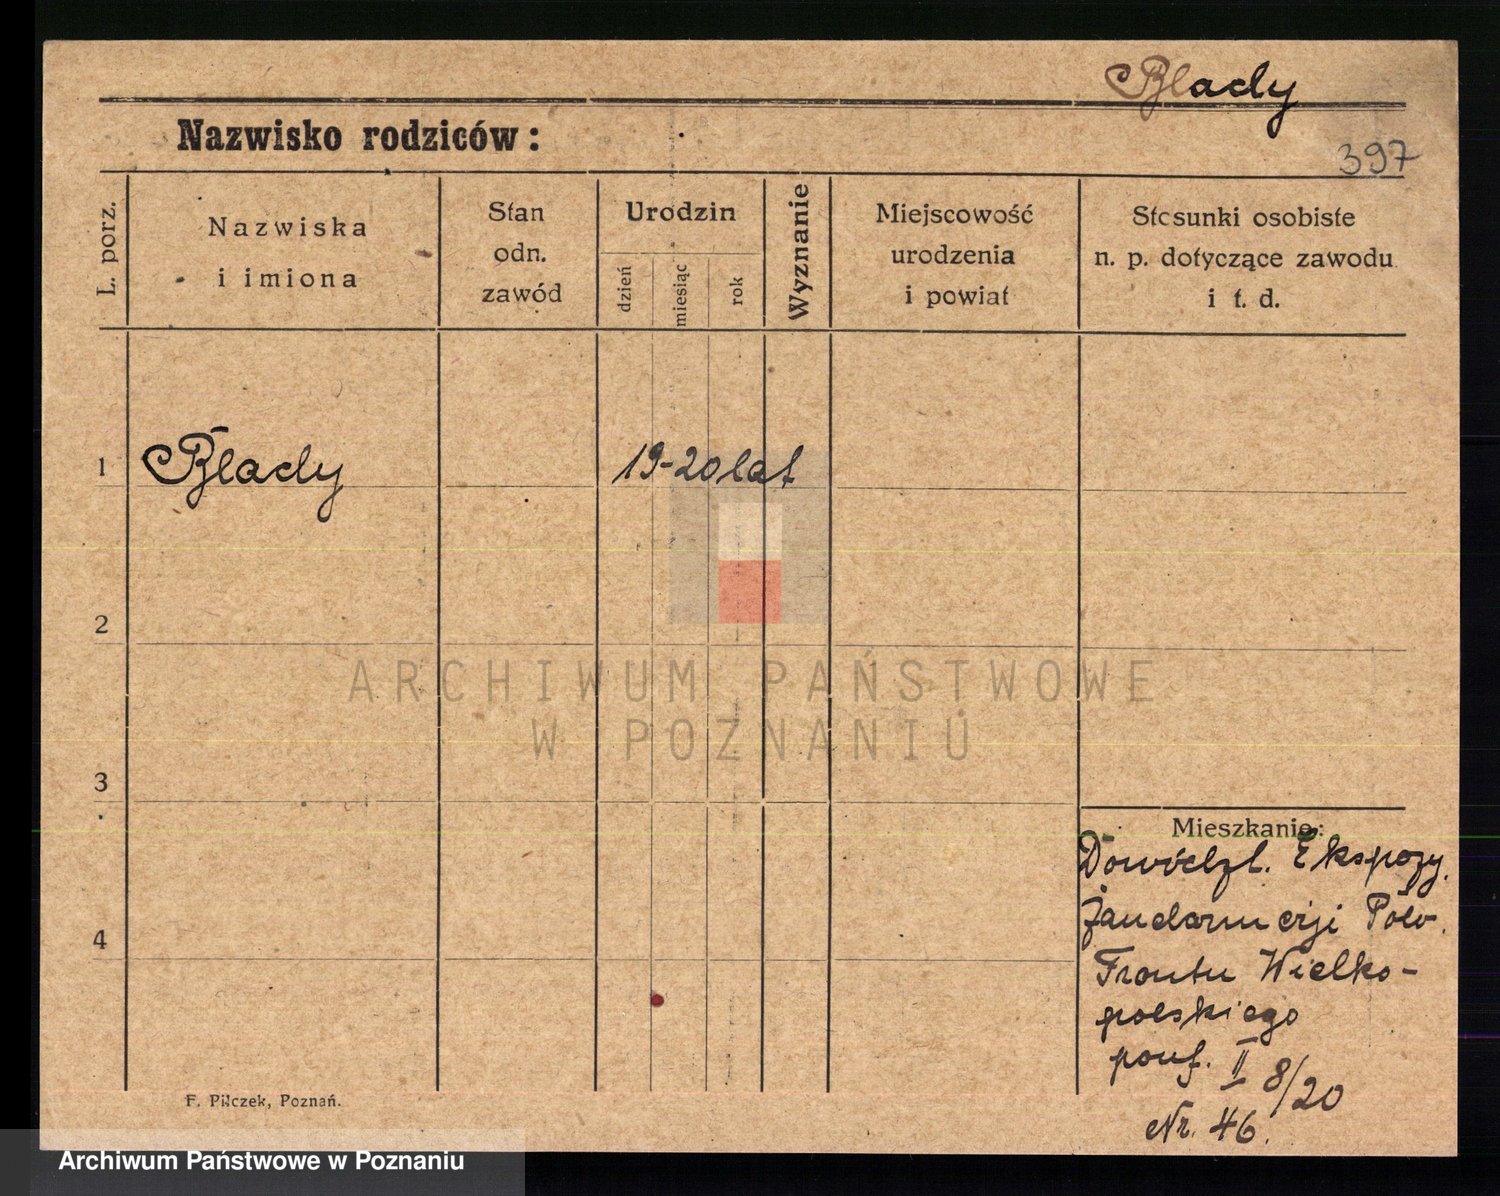 Blady
Nazwisko rodziców:
397
L. porz.
Nazwiska
i imiona
Stan
odn.
zawód
Urodzin
dzień
miesiąc
rok
Wyznanie
Miejscowość
urodzenia
i powiat
Stosunki osobiste
n. p. dotyczące zawodu
i t. d.
1
Blady
19-20 lat
2
3
4
Mieszkanie:
Dowództ. Ekspozy.
Żandarmerji Polow.
Frontu Wielko-
polskiego
pouf. II 8/20
Nr. 46.
F. Pilczek, Poznań.
ARCHIWUM PAŃSTWOWE
W POZNANIU
Archiwum Państwowe w Poznaniu